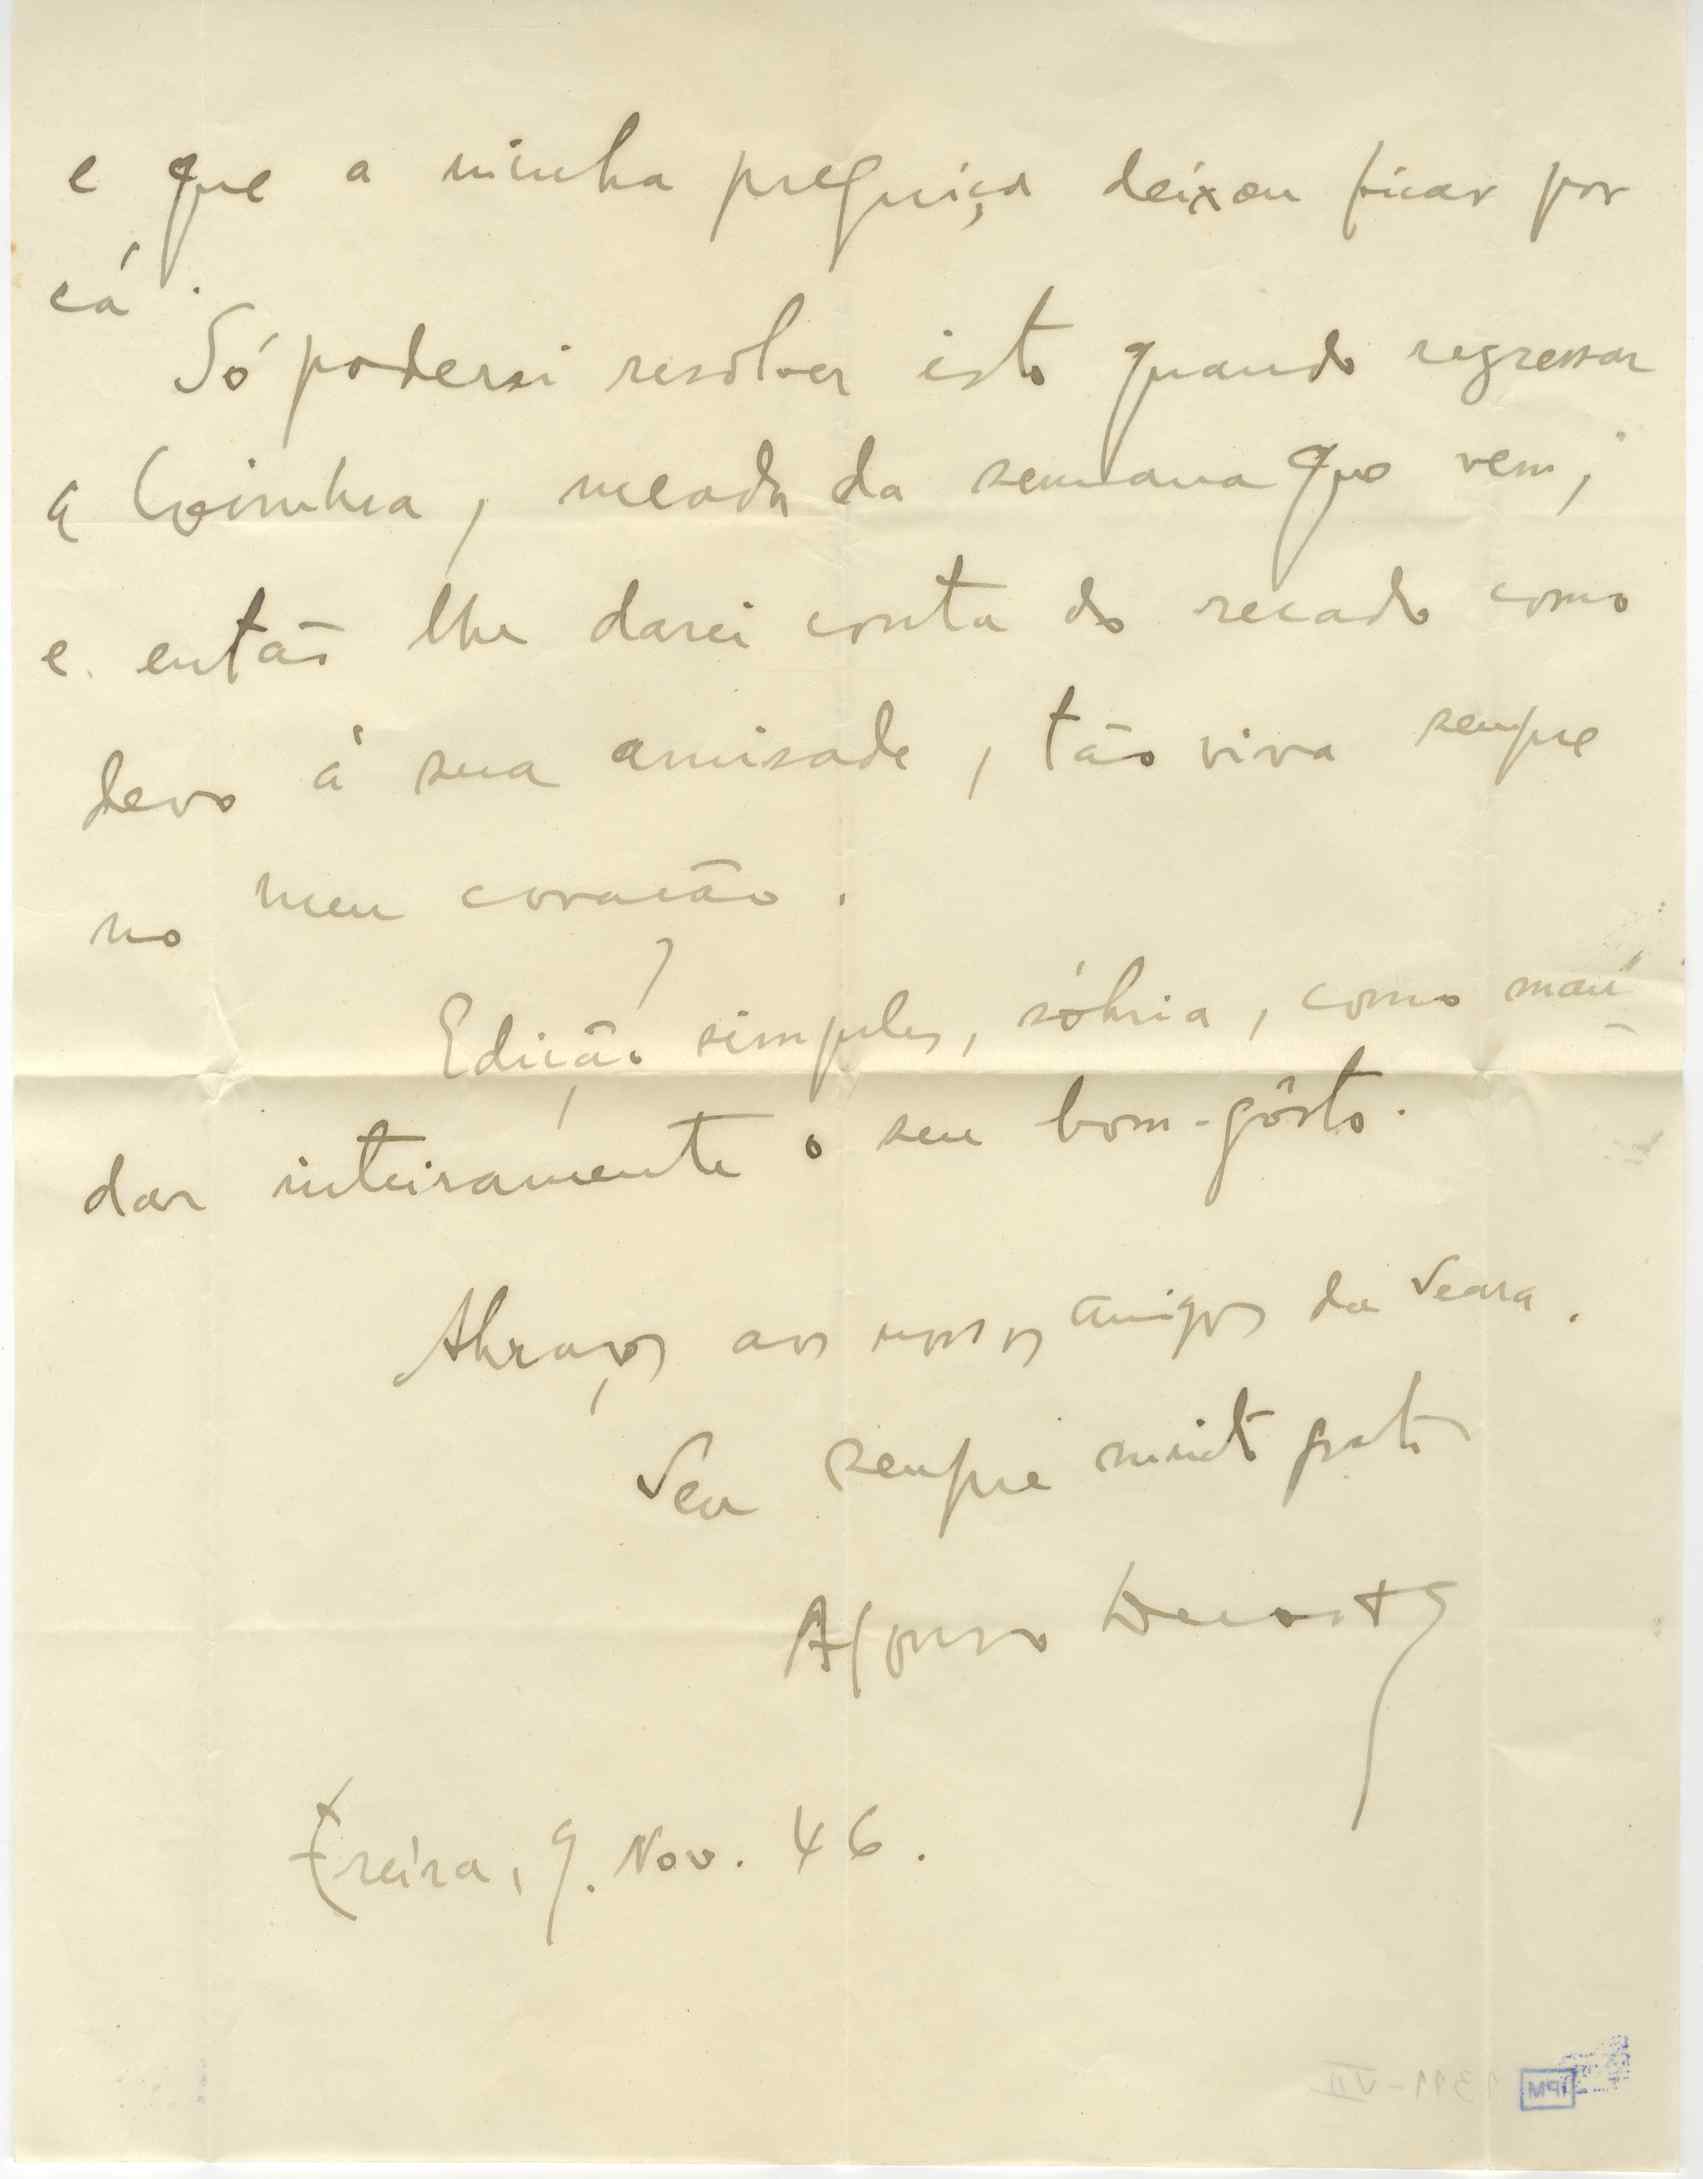 e que a minha preguiça deixou ficar por
cá.
Só poderei resolver isto quando regressar
a Coimbra, meado da semana que vem;
e então lhe darei conta do recado como
devo à sua amisade, tão viva sempre
no meu coração.
Edição simples, sóbria, como man-
dar inteiramente o seu bom-gôsto.
Abraços aos nossos amigos da Seara.
Seu sempre muito grato
Afonso Duarte
Ereira, 9. Nov. 46.
1391-VII
IPM